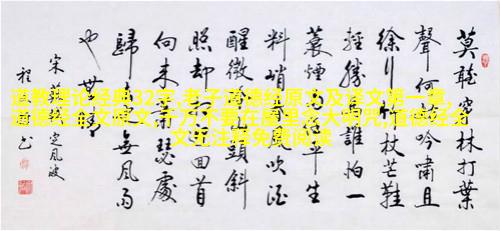 道教理论经典32字,老子道德经原文及译文第一章,
道德经全文原文;千万不要在房里念大明咒,道德经全
文无注释免费阅读
莫聽穿林打葉
聲何妨吟嘯且
徐行竹杖芒鞋
輕勝馬誰怕一
蓑煙雨任平生
料峭春風吹酒
醒微冷山頭斜
照却相迎回首
向来蕭瑟處
歸去也無風雨
也無晴
宋蘇軾定風波